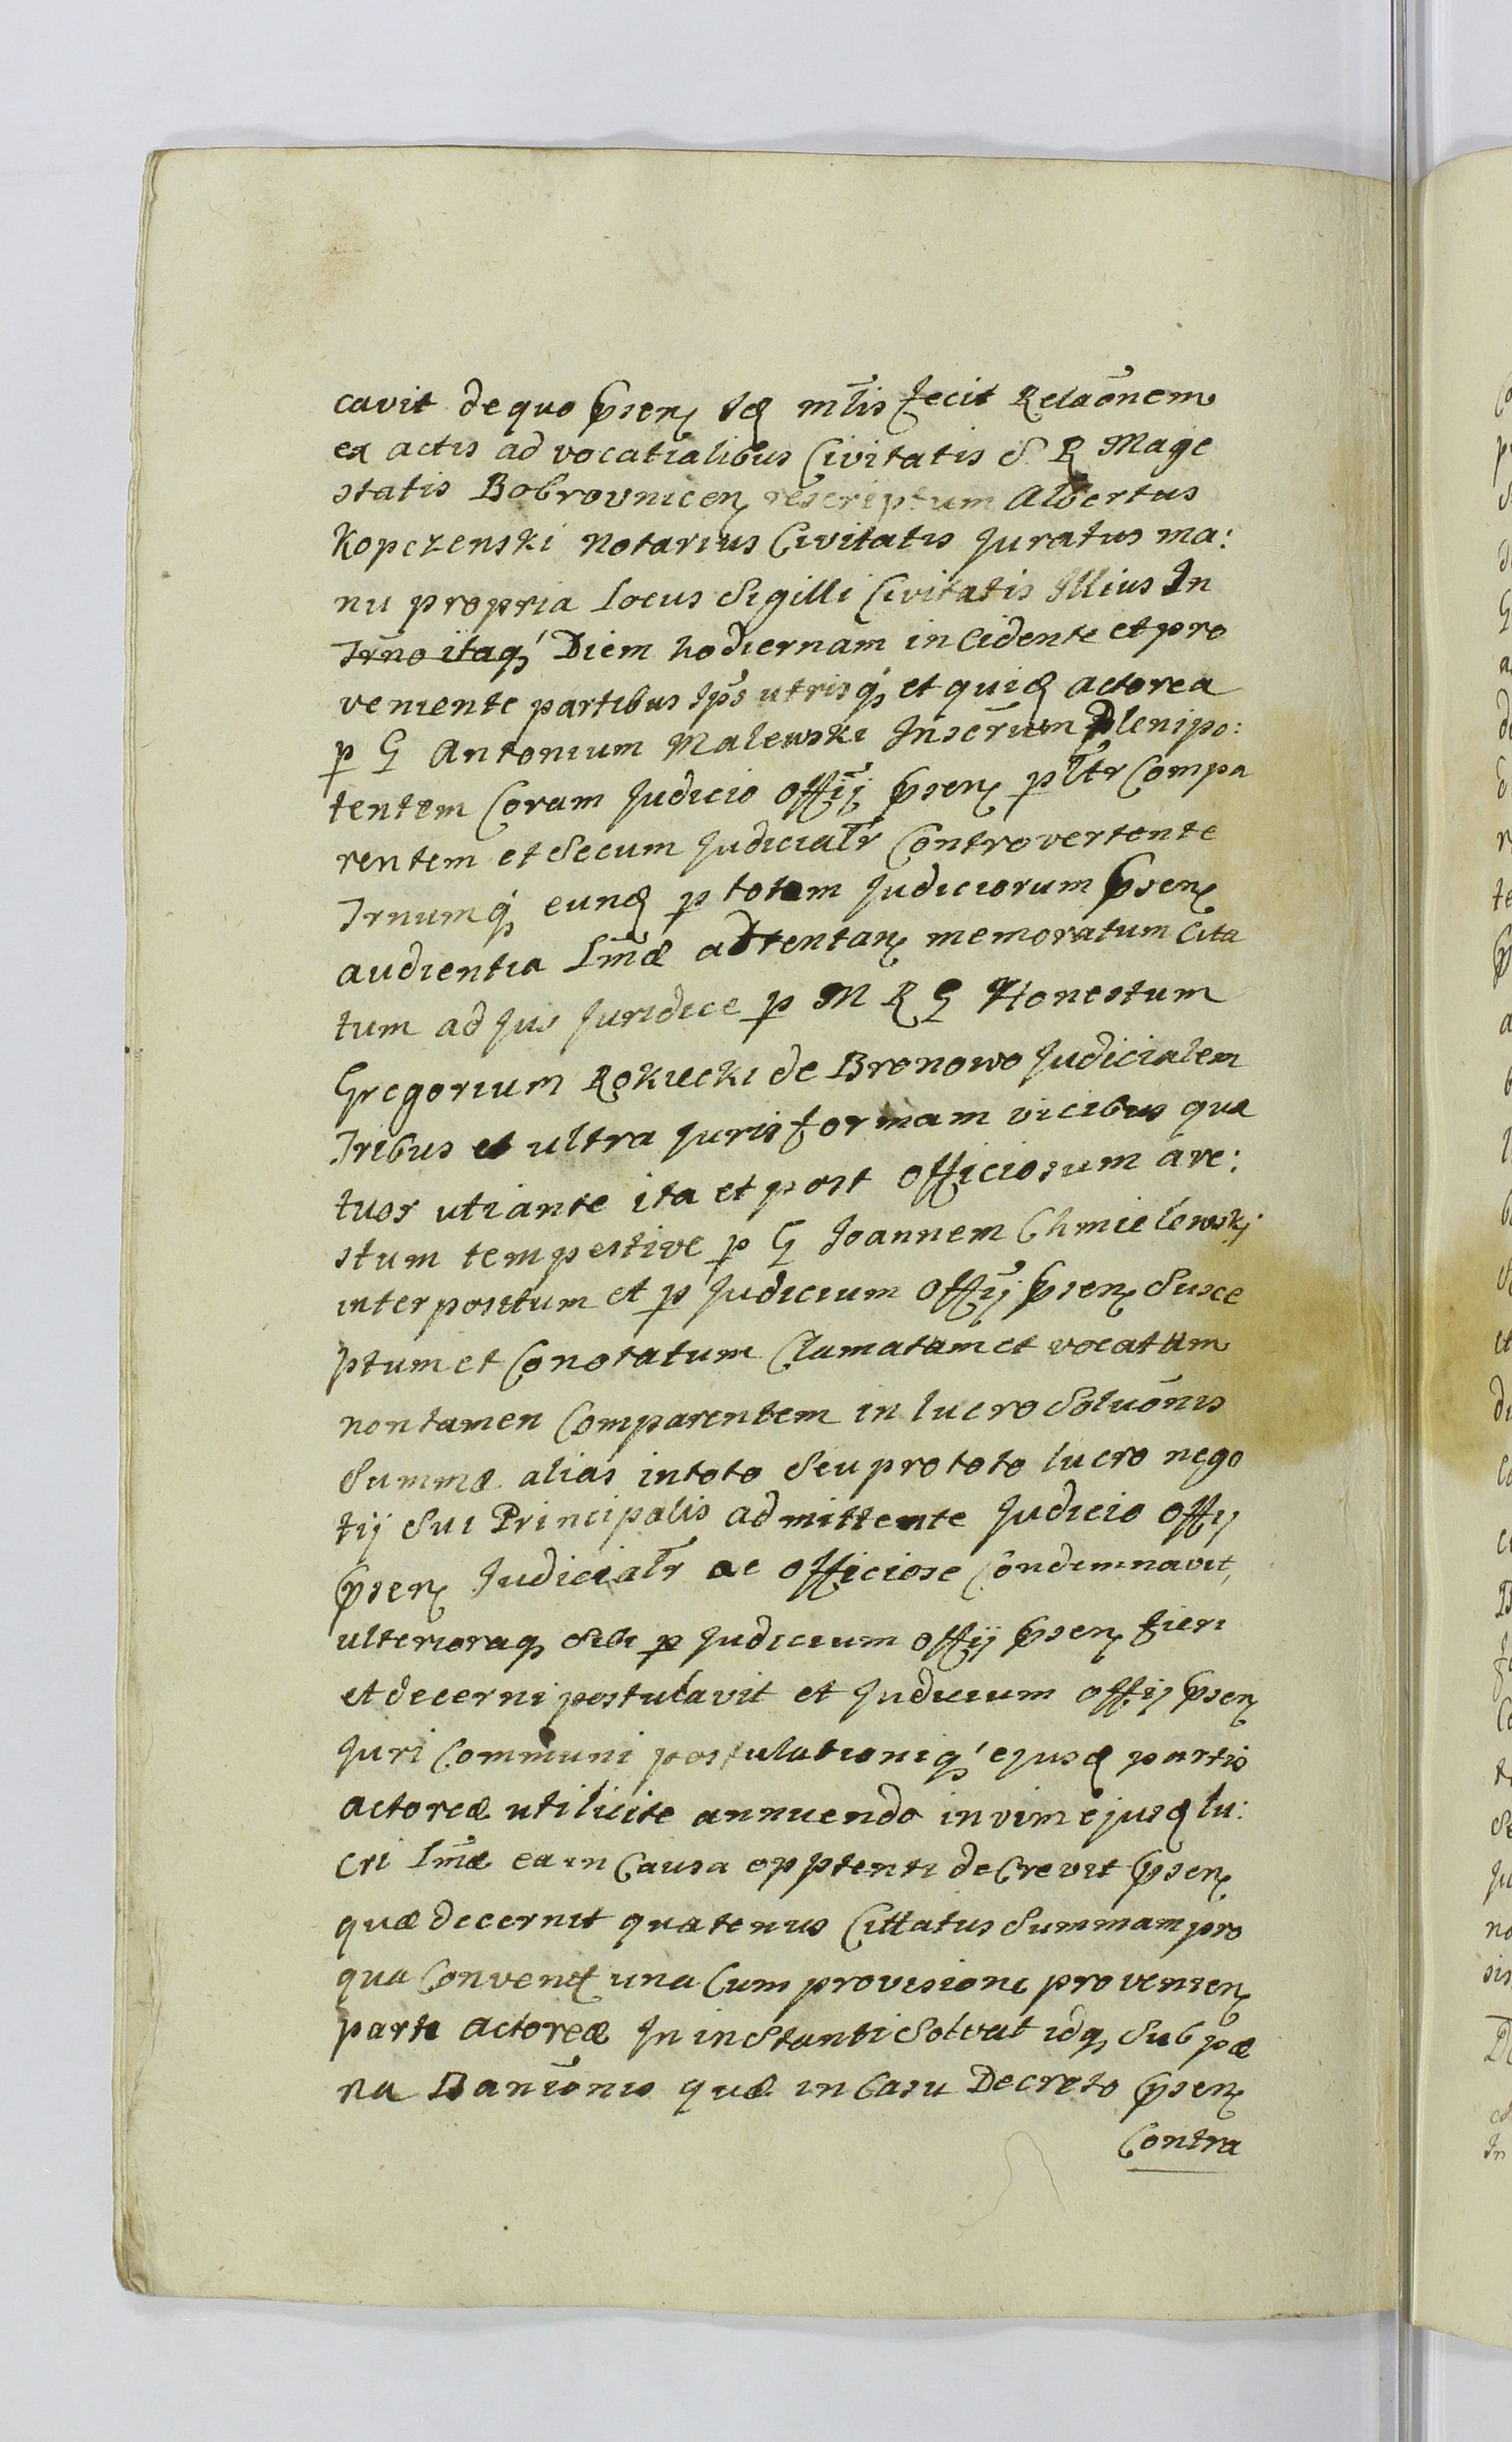 cavit de quo psen Id mlis fecit Relaonem
ex actis advocatialibus Civitatis S R Mage
statis Bobrovnicen rescriptum Albertus
Kopczenski Notarius Civitatis Juratus ma:
nu propria Locus Sigilli Civitatis Illius In
Trno itaq Diem hodiernam incidente et pro
veniente partibus Ips utrisq et quid actorea
p G Antonium Malewski Inscrium plenipo:
tentem Coram Judicio Offij psen pltr Compa
rentem et Secum Judicialr Controvertente
Trnumq eund p totam Judiciorum psen
audientia Lmæ adtentan memoratum Cita
tum ad Jus Juridice p M R G Honestum
Gregorium Rokucki de Bronowo Judicialem
Tribus et ultra Juris formam vicibus qua
tuor uti ante ita et post Officiosum are:
stum tempestive p G Joannem Chmielewskj
interpositum et p Judicium Offij psen Susce
ptum et Conotatum Clamatam et vocatum
non tamen Comparentem in lucro Soluonis
Summæ alias in toto Seu pro toto lucro nego
tij Sui Principalis admittente Judicio Offij
psen Judicialr ac Officiose Condemnavit,
ulterioraq Sibi p Judicium Offij psen fieri
et decerni postulavit et Judicium Offij psen
Juri Communi postulationiq ejusd partis
actoreæ uti licite annuendo in vim ejusd lu:
cri Lmæ ea in Causa opptenti deCrevit psen
quæ decernit quatenus Cittatus Summam pro
qua Convent una Cum provisione provenien
parti actoreæ In inStanti Solvat idq Sub pæ
na Banionis quæ in Casu Decreto psen
Contra